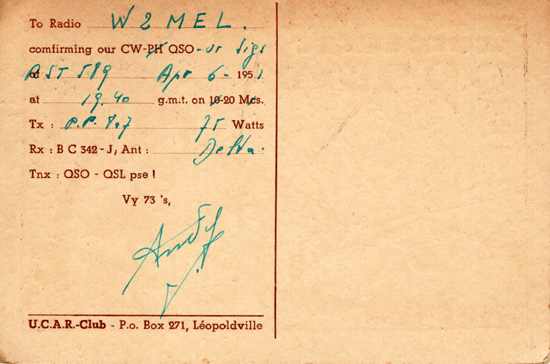 To Radio W2MEL.
comfirming our CW-PH QSO - ur sigs
RST 589 Apr 6 - 195
at 19.40 g.m.t. on 10-20 Mcs.
Tx : P.P. 807 75 Watts
Rx : B C 342 - J, Ant : Delta.
Tnx : QSO - QSL pse !
Vy 73 's,
Andy
U.C.A.R.-Club - P.o. Box 271, Léopoldville